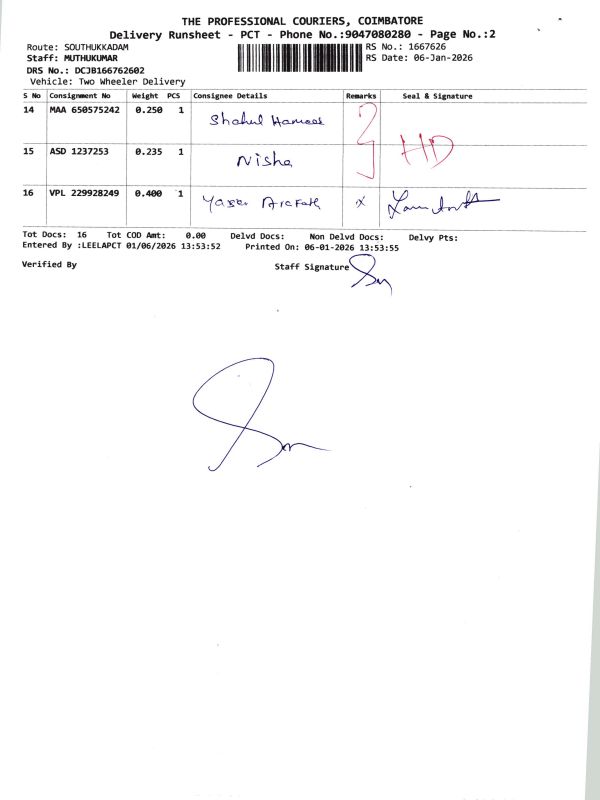 THE PROFESSIONAL COURIERS, COIMBATORE
Delivery Runsheet - PCT - Phone No.:9047080280 - Page No.:2
Route: SOUTHUKKADAM RS No.: 1667626
Staff: MUTHUKUMAR RS Date: 06-Jan-2026
DRS No.: DCJB166762602
Vehicle: Two Wheeler Delivery
S No Consignment No Weight PCS Consignee Details Remarks Seal & Signature
14 MAA 650575242 0.250 1 Shahul Hameed
15 ASD 1237253 0.235 1 Nisha HD
16 VPL 229928249 0.400 1 Yaser Arafath x
Tot Docs: 16 Tot COD Amt: 0.00 Delvd Docs: Non Delvd Docs: Delvy Pts:
Entered By :LEELAPCT 01/06/2026 13:53:52 Printed On: 06-01-2026 13:53:55
Verified By Staff Signature